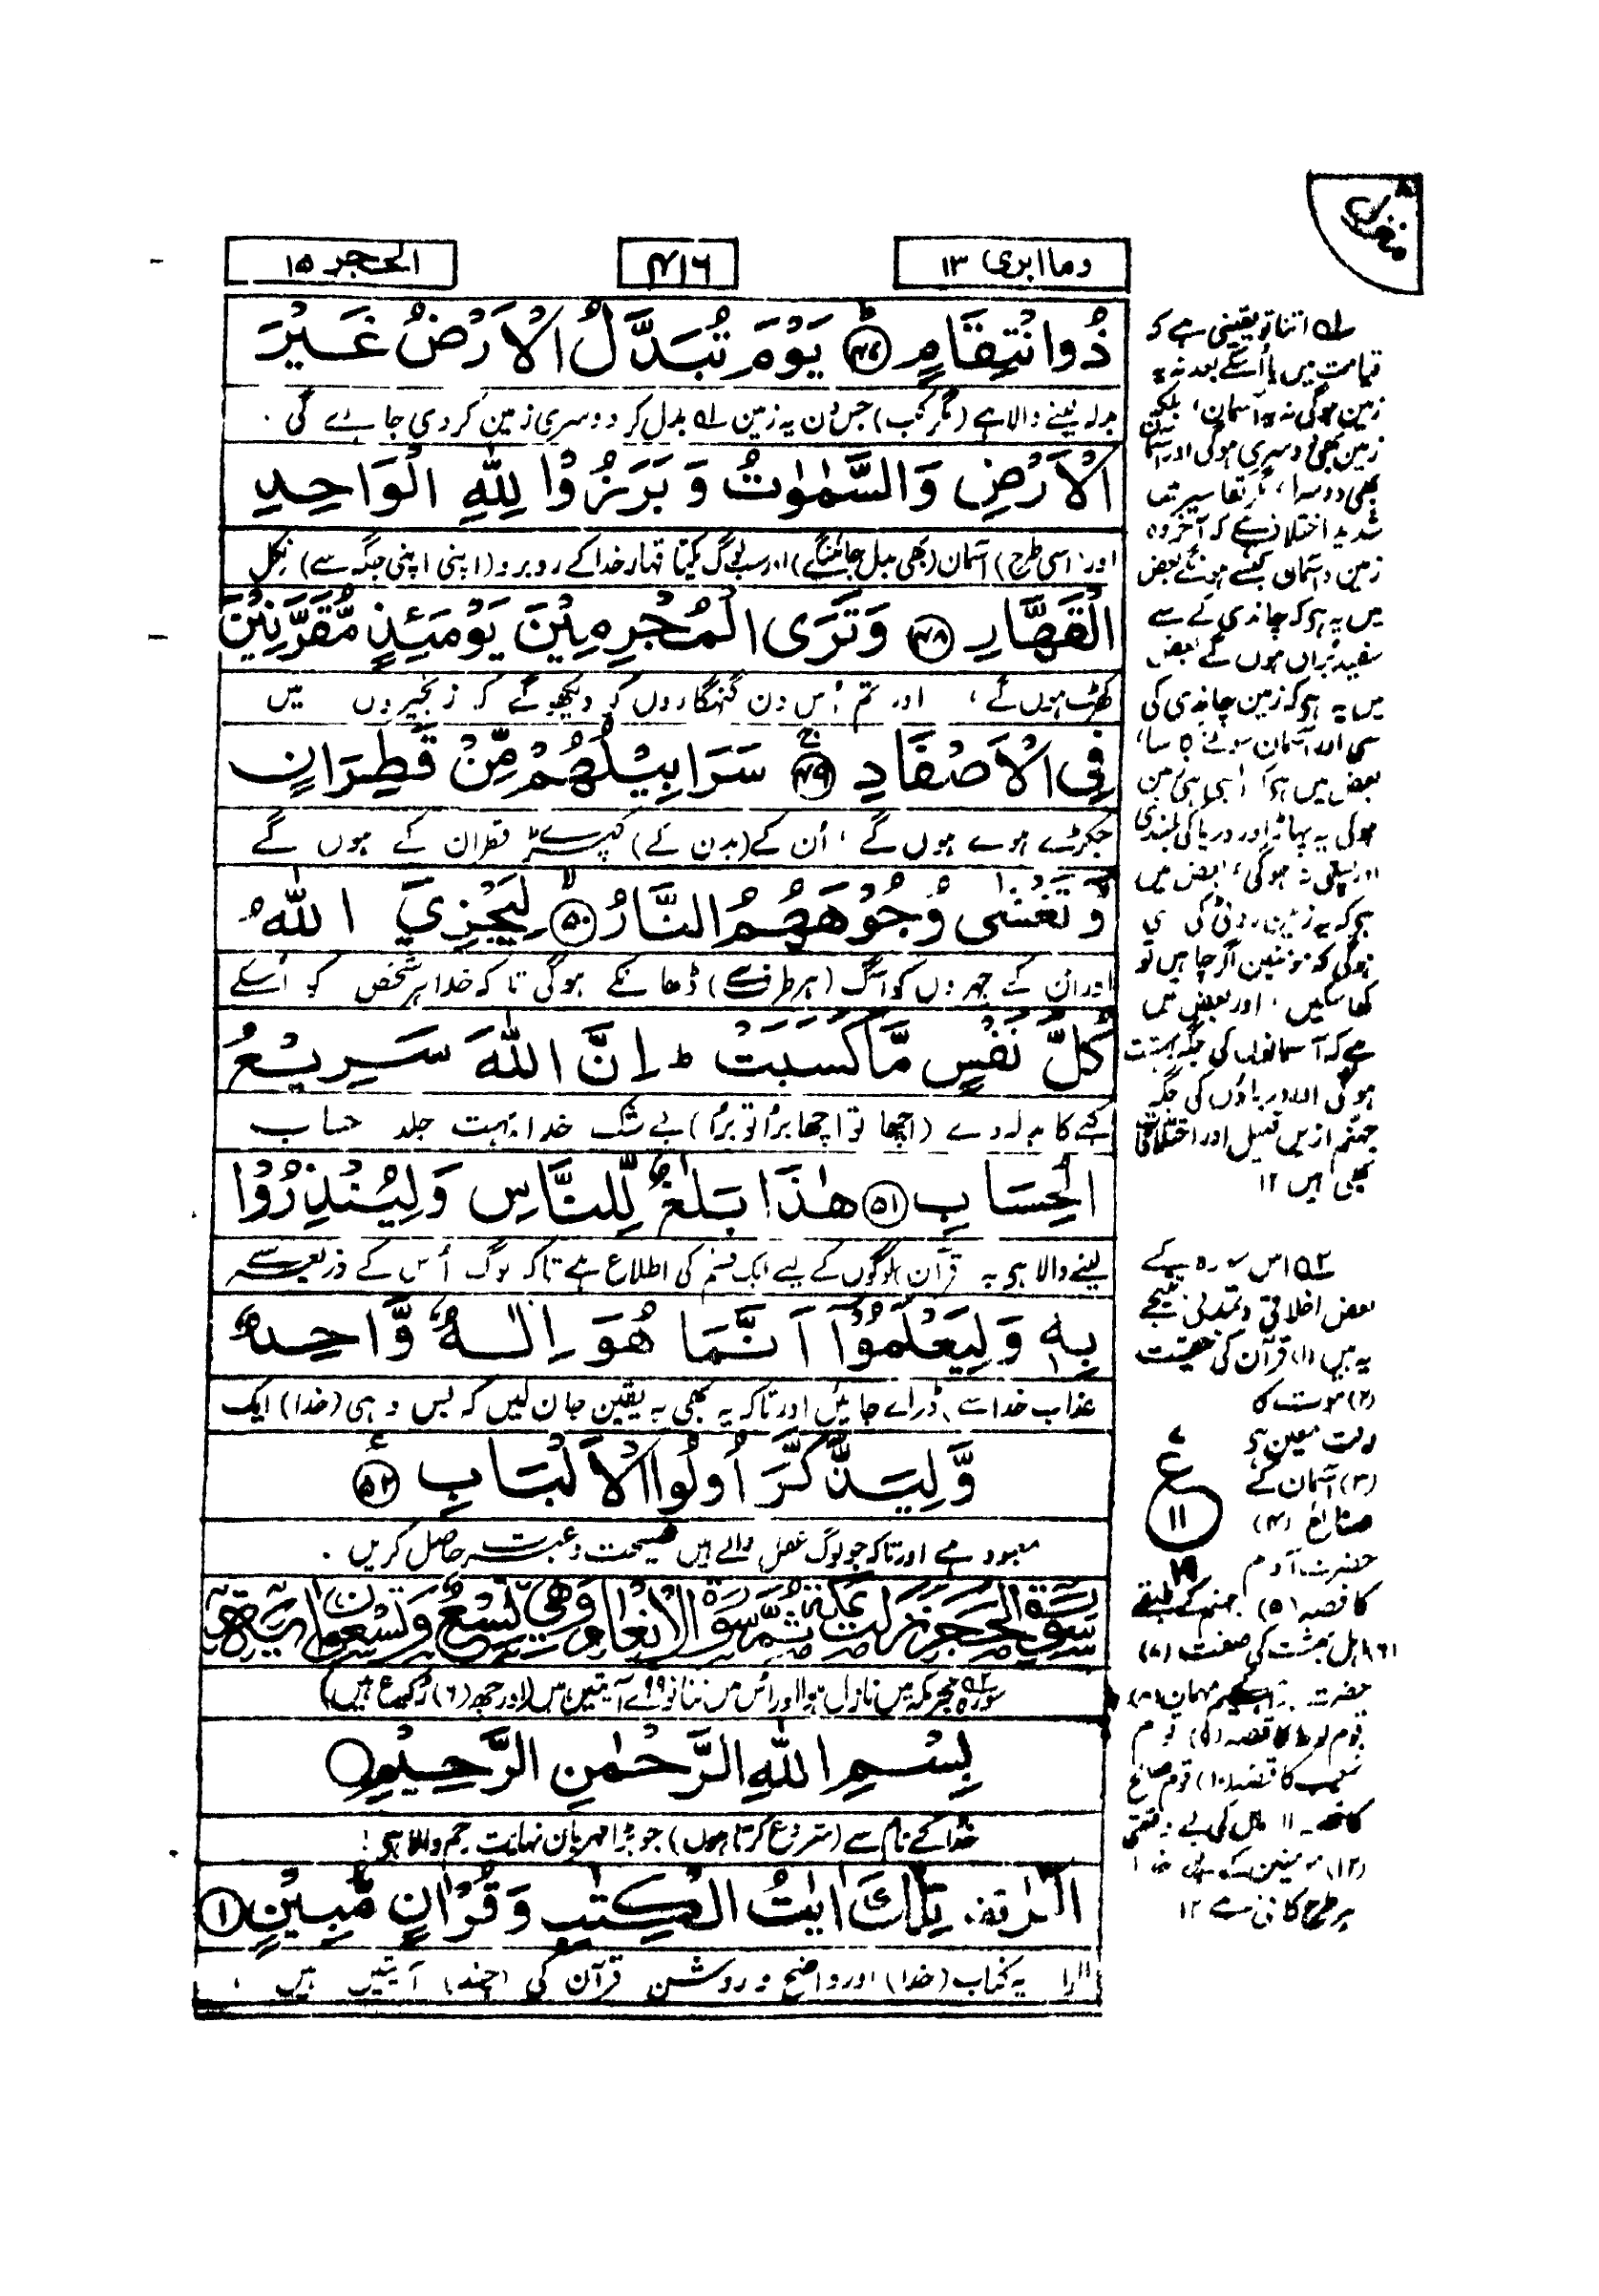 منزل
وما ابری ۱۳
۴۱۶
الحجر ۱۵
ذُوا نْتِقَامٍ ؕ ﴿۴۷﴾ يَوْمَ تُبَدَّلُ الْاَرْضُ غَيْرَ
بدلہ لینے والا ہے (مگر کب) جس دن یہ زمین لہ بدل کر دوسری زمین کر دی جائے گی ۔
الْاَرْضِ وَالسَّمٰوٰتُ وَ بَرَزُوْا لِلّٰهِ الْوَاحِدِ
اور (اسی طرح) آسمان (بھی بدل جائینگے) اور سب لوگ یکتا قہار خدا کے روبرو (اپنی اپنی جگہ سے) نکل
الْقَهَّارِ ﴿۴۸﴾ وَتَرَى الْمُجْرِمِيْنَ يَوْمَئِذٍ مُّقَرَّنِيْنَ
کھڑے ہوں گے ، اور تم اُس دن گنہگاروں کو دیکھو گے کہ زنجیروں میں
فِى الْاَصْفَادِ ۚ ﴿۴۹﴾ سَرَابِيْلُهُمْ مِّنْ قَطِرَانٍ
جکڑے ہوے ہوں گے ، اُن کے (بدن کے) کپڑے قطران کے ہوں گے
وَّتَغْشٰى وُجُوْهَهُمُ النَّارُ ۙ ﴿۵۰﴾ لِيَجْزِيَ اللّٰهُ
اور ان کے چہروں کو آگ (ہر طرف سے) ڈھانکے ہوگی تاکہ خدا ہر شخص کو اُسکے
كُلَّ نَفْسٍ مَّا كَسَبَتْ ؕ اِنَّ اللّٰهَ سَرِيْعُ
کئے کا بدلہ دے (اچھا تو اچھا برا تو برا) بے شک خدا بہت جلد حساب
الْحِسَابِ ﴿۵۱﴾ هٰذَا بَلٰغٌ لِّلنَّاسِ وَلِيُنْذَرُوْا
لینے والا ہی یہ قرآن لوگوں کے لیے ایک قسم کی اطلاع ہے تاکہ لوگ اُس کے ذریعہ سے
بِهٖ وَلِيَعْلَمُوْٓا اَنَّمَا هُوَ اِلٰهٌ وَّاحِدٌ
عذاب خدا سے ڈرائے جائیں اور تاکہ یہ بھی یہ یقین جان لیں کہ بس وہی (خدا) ایک
وَّلِيَذَّكَّرَ اُولُوا الْاَلْبَابِ ﴿۵۲﴾
معبود ہے اور تاکہ جو لوگ عقل والے ہیں نصیحت و عبرت حاصل کریں ۔
سورة الحجر نزلت بمكة ثم سورة الانعام وهي تسع وتسعون اية
سورہ حجر مکہ میں نازل ہوا اور اس میں ننانوے ۹۹ آیتیں ہیں (اور چھ (۶) رکوع ہیں)
بِسْمِ اللّٰهِ الرَّحْمٰنِ الرَّحِيْمِ
خدا کے نام سے (شروع کرتا ہوں) جو بڑا مہربان نہایت رحم والا ہی !
الٓرٰ تِلْكَ اٰيٰتُ الْكِتٰبِ وَ قُرْاٰنٍ مُّبِيْنٍ ﴿۱﴾
الرا یہ کتاب (خدا) اور واضح و روشن قرآن کی (چند) آیتیں ہیں ،
لہ اتنا تو یقینی ہے کہ
قیامت میں یا اُسکے بعد نہ یہ
زمین ہوگی نہ یہ آسمان، بلکہ
زمین بھی دوسری ہوگی اور آسمان
بھی دوسرا، مگر تفاسیر میں
شدید اختلاف ہے کہ آخر وہ
زمین و آسمان کیسے ہونگے بعض
میں یہ ہی کہ چاندی کے سے
سفید براں ہوں گے بعض
میں یہ ہی کہ زمین چاندی کی
سی اور آسمان سونے کا سا،
بعض میں ہی کہ ایسی ہی زمین
ہوگی یہ پہاڑ اور دریا کی بلندی
اور پستی نہ ہوگی، بعض میں
ہی کہ یہ زمین روٹی کی سی
ہوگی کہ مومنین اگر چاہیں تو
کھا سکیں ، اور بعض میں
ہے کہ آسمانوں کی جگہ بہشت
ہوگی اور دریاؤں کی جگہ
جہنم ازیں قبیل اور اختلافات
بھی ہیں ۱۲
۵۲ اس سورہ کے
بعض اخلاقی و تمدنی نتیجے
یہ ہیں (۱) قرآن کی حقیقت
(۲) موت کا
وقت معین ہی
(۳) آسمان کے
صنائع (۴)
ع
۱۱
۱۹
حضرت آدم
کا قصہ (۵) جہنم کے طبقے
(۶) اہل بہشت کی صفت (۷)
حضرت ابراہیم مہمان (۸)
قوم لوط کا قصہ (۹) قوم
شعیب کا قصہ (۱۰) قوم صالح
کا قصہ ۱۱ مال کی بے وقعتی
(۱۲) مومنین کے لیے خدا
ہر طرح کافی ہے ۱۲